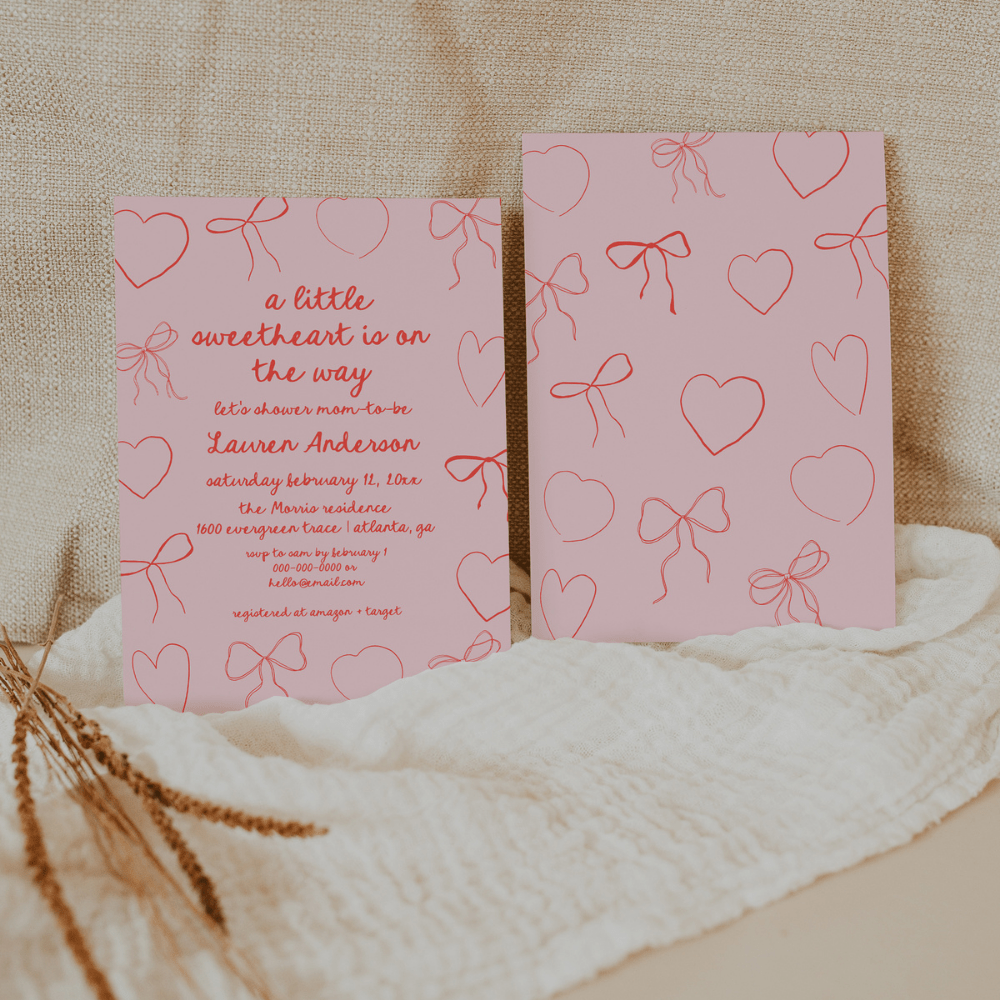 a little
sweetheart is on
the way
let's shower mom-to-be
Lauren Anderson
saturday february 12, 20xx
the Morris residence
1600 evergreen trace | atlanta, ga
rsvp to sam by february 1
000-000-0000 or
hello@email.com
registered at amazon + target